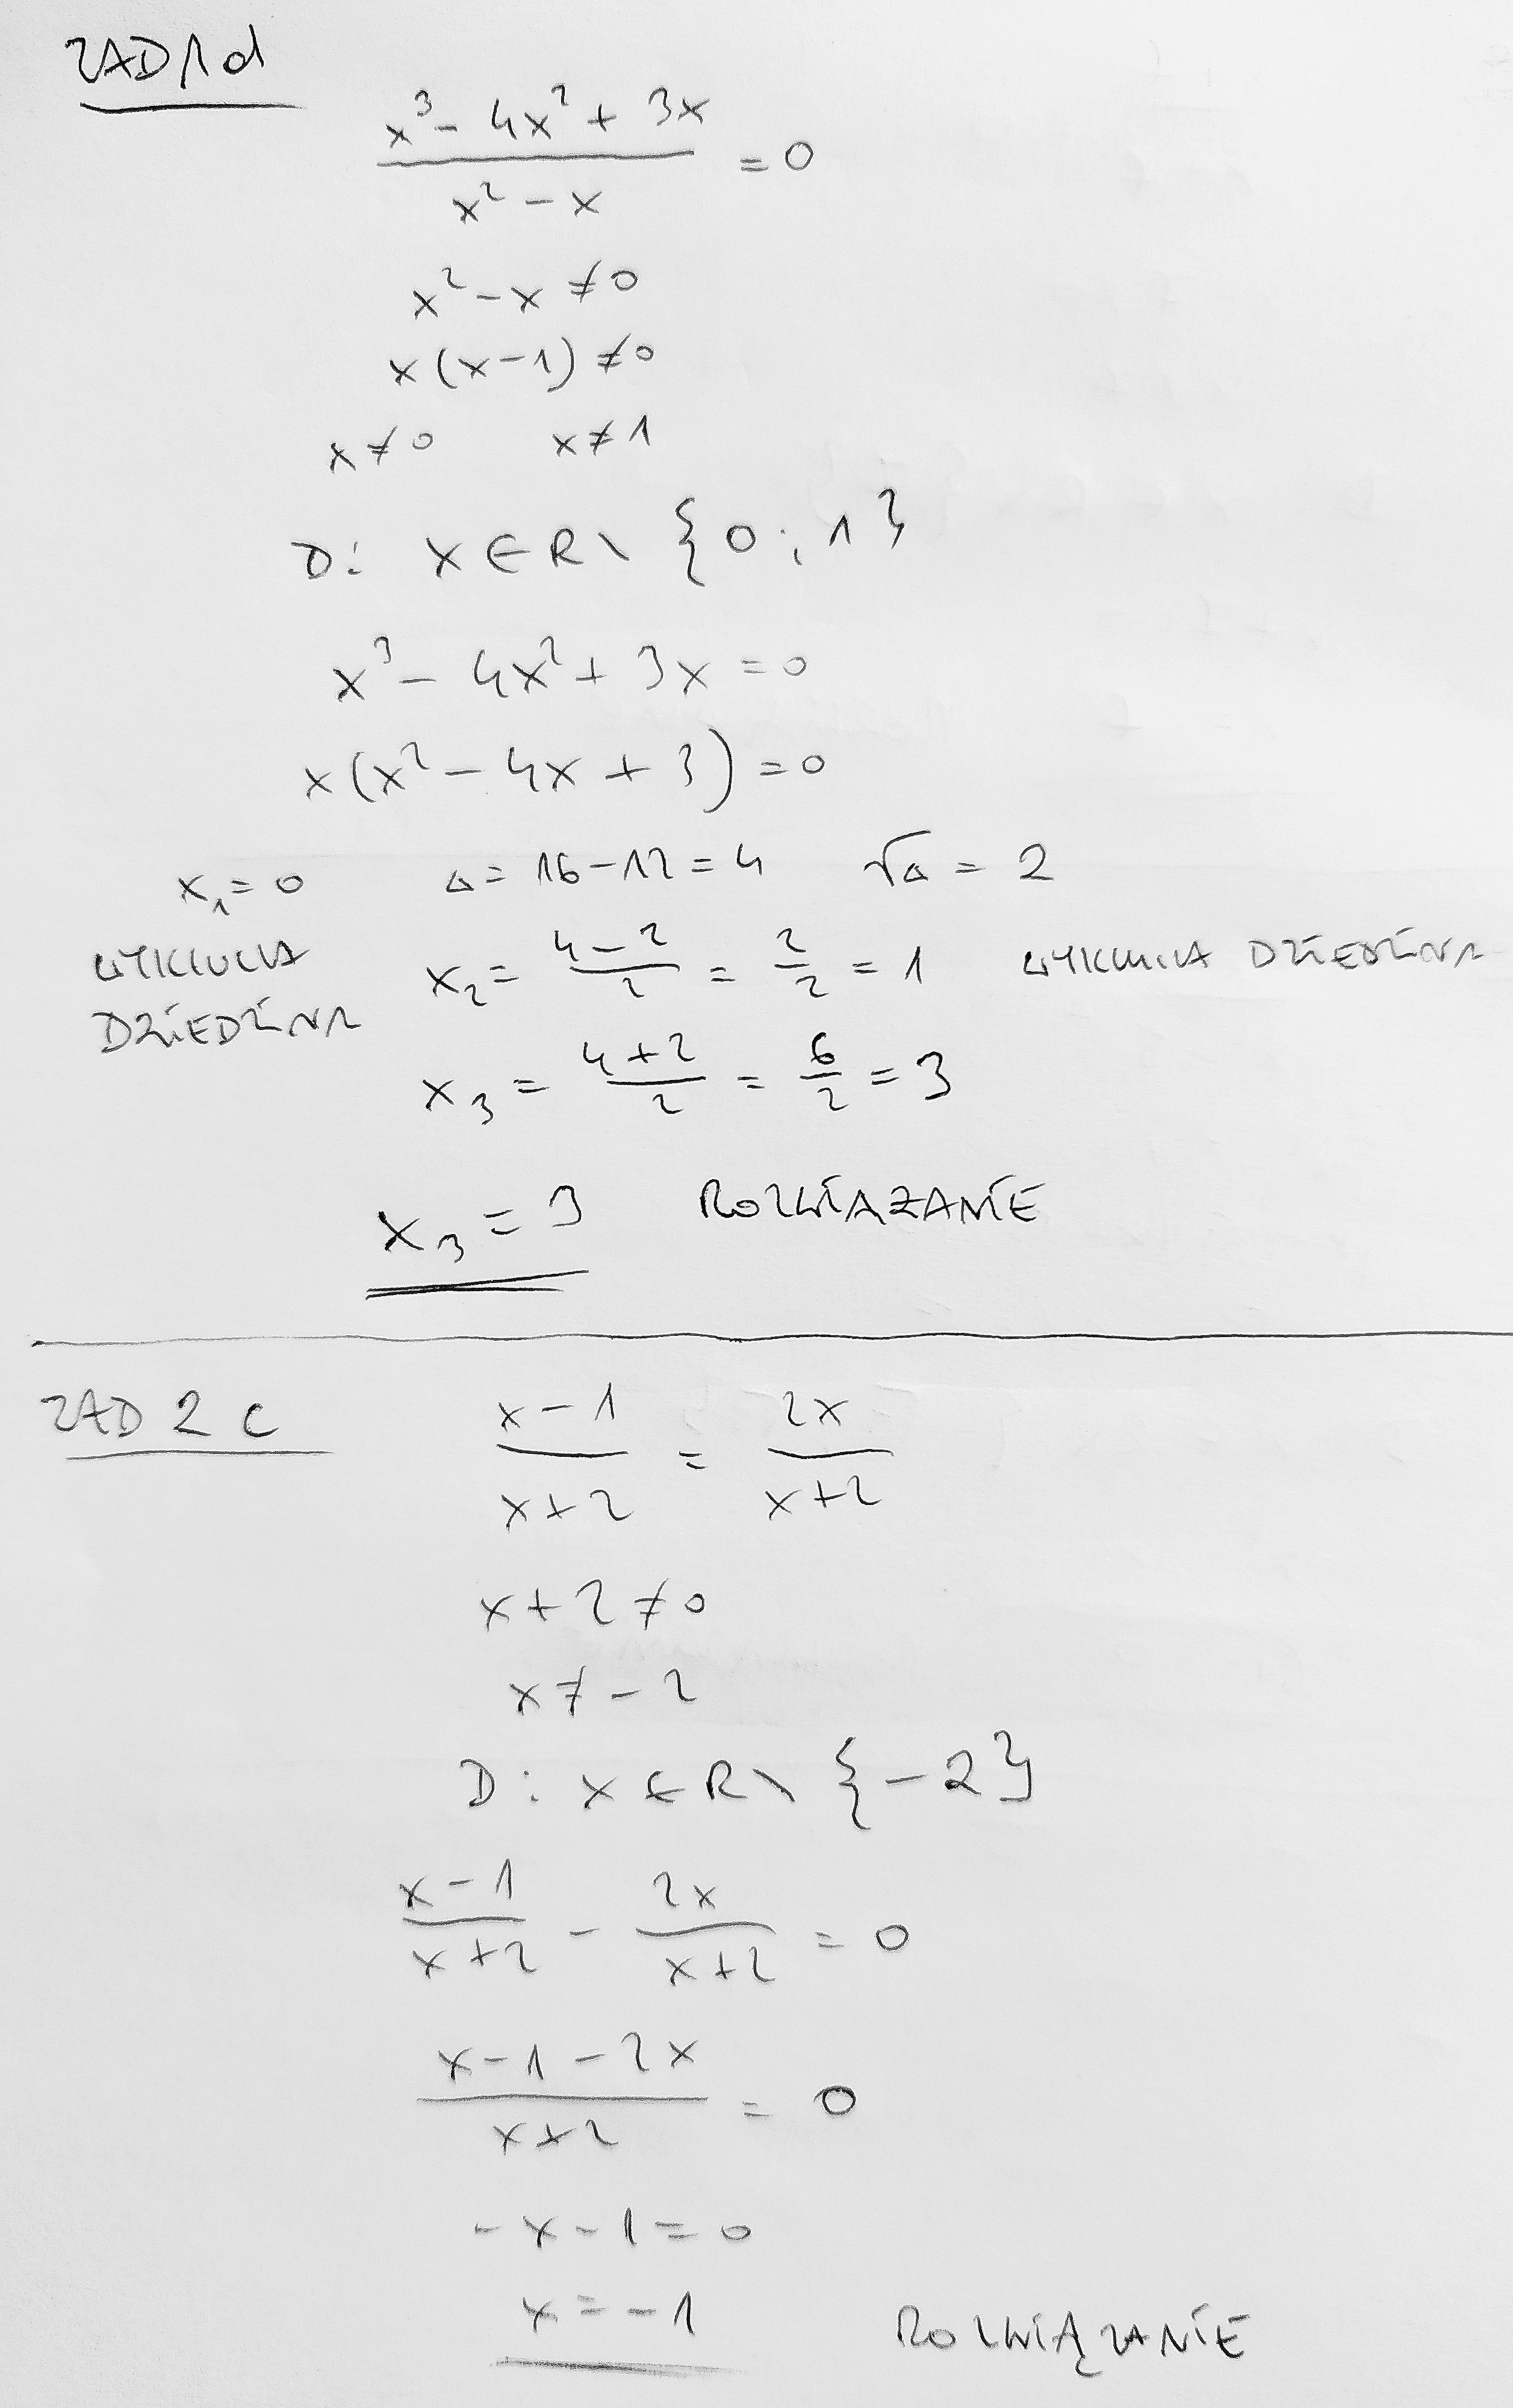 ZAD 1 d
x³ - 4x² + 3x
―――――― = 0
x² - x
x² - x ≠ 0
x(x-1) ≠ 0
x ≠ 0 x ≠ 1
D: x ∈ R \ {0; 1}
x³ - 4x² + 3x = 0
x(x² - 4x + 3) = 0
x₁ = 0 Δ = 16 - 12 = 4 √Δ = 2
WYKLUCZA DZIEDZINA
x₂ = (4-2)/2 = 2/2 = 1 WYKLUCZA DZIEDZINA
x₃ = (4+2)/2 = 6/2 = 3
x₃ = 3 ROZWIĄZANIE
ZAD 2 c
(x-1)/(x+2) = 2x/(x+2)
x + 2 ≠ 0
x ≠ -2
D: x ∈ R \ {-2}
(x-1)/(x+2) - 2x/(x+2) = 0
(x-1-2x)/(x+2) = 0
-x - 1 = 0
x = -1 ROZWIĄZANIE